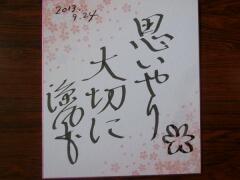 2013.
9.24
思いやり
大切に